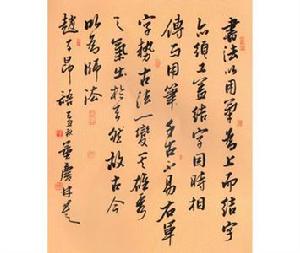 書法以用筆為上而結字
亦須工蓋結字因時相
傳而用筆千古不易右軍
字勢古法一變其雄秀
之氣出於天然故古今
以為師法
趙子昂語